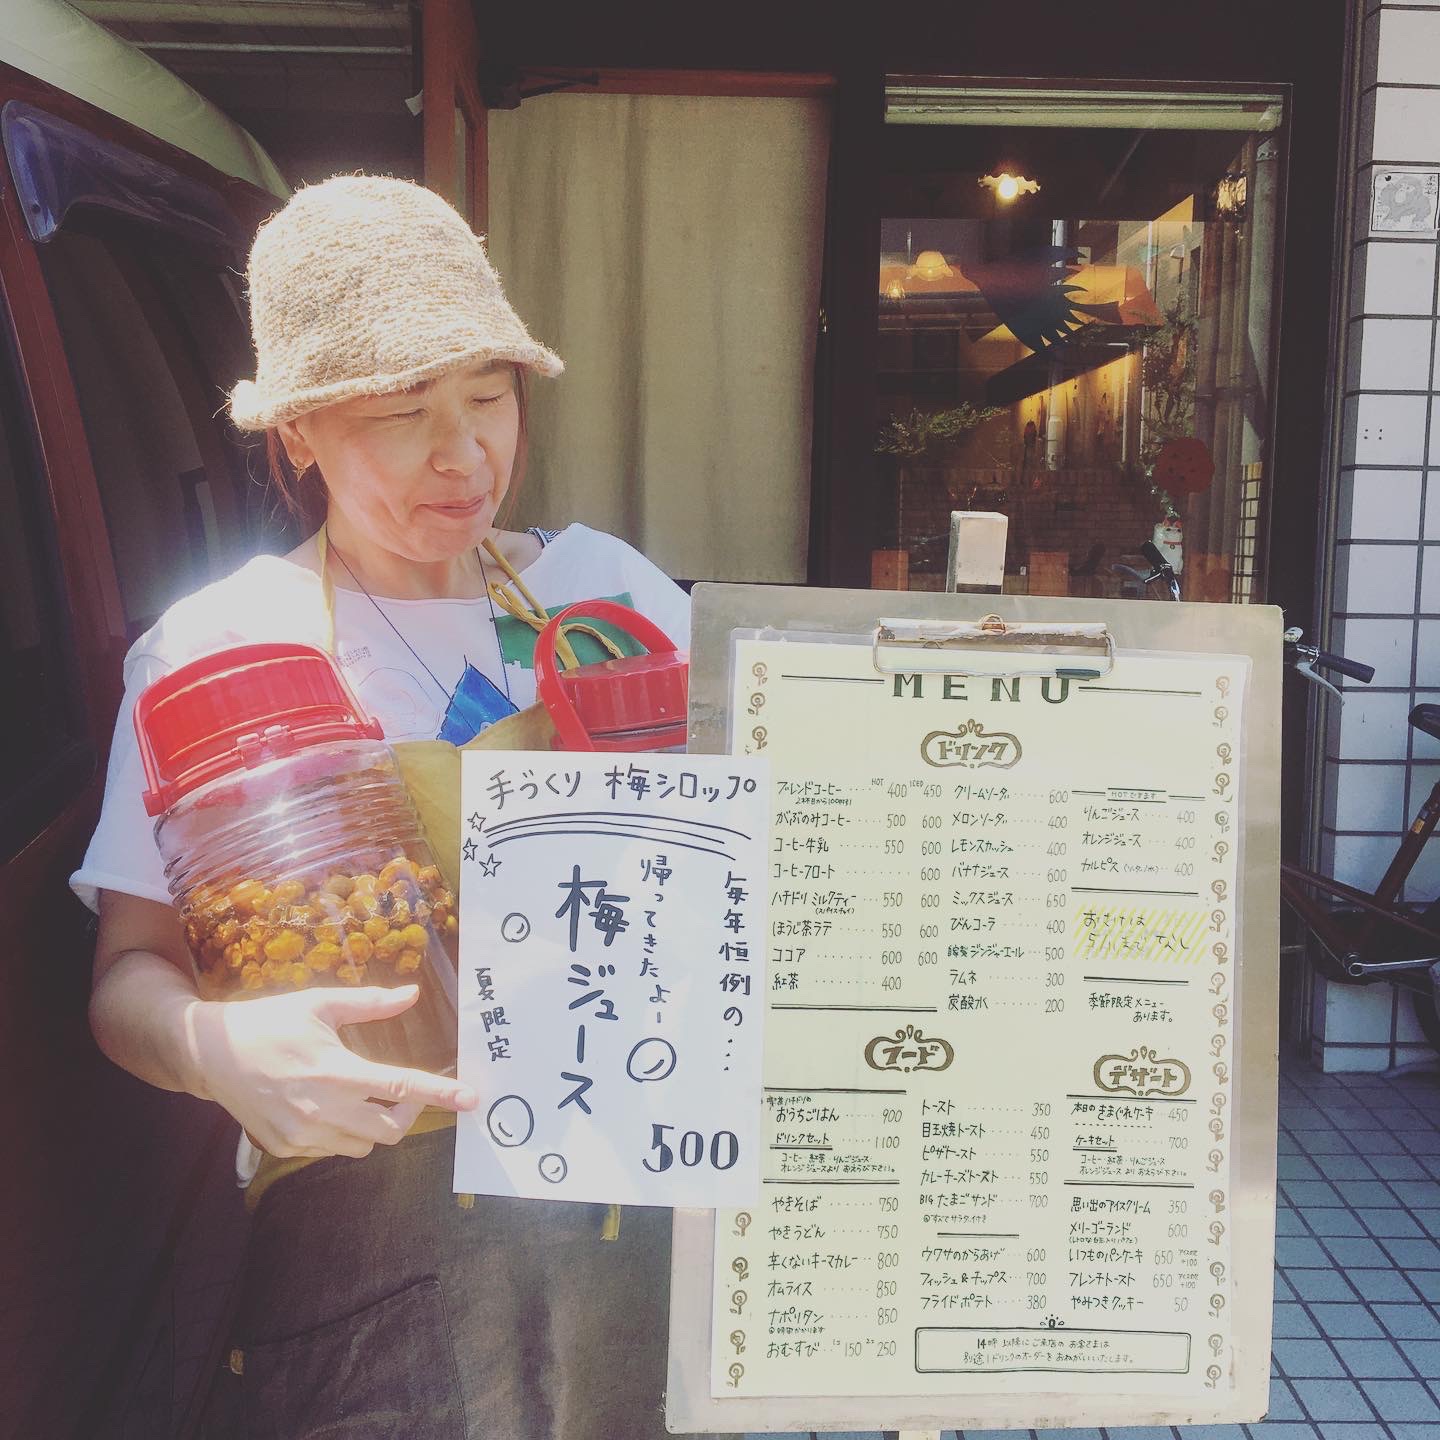 手づくり 梅シロップ
毎年恒例の…
帰ってきたよー
梅ジュース
夏限定
500
MENU
ドリンク
ブレンドコーヒー HOT 400 ICED 450
がぶのみコーヒー 500 600
コーヒー牛乳 550 600
コーヒーフロート 600
ハチドリミルクティー 550 600
(スパイスチャイ)
ほうじ茶ラテ 550 600
ココア 600 600
紅茶 400
クリームソーダ 600
メロンソーダ 400
レモンスカッシュ 400
バナナジュース 600
ミックスジュース 650
びんコーラ 400
自家製ジンジャーエール 500
ラムネ 300
炭酸水 200
HOTできます
りんごジュース 400
オレンジジュース 400
カルピス 400
季節限定メニュー
あります。
フード
おうちごはん 900
ドリンクセット 1100
コーヒー・紅茶・りんごジュース・
オレンジジュースよりおえらび下さい。
やきそば 750
やきうどん 750
辛くないキーマカレー 800
オムライス 850
ナポリタン 850
おむすび 1コ 150 2コ 250
トースト 350
目玉焼トースト 450
ピザトースト 550
カレーチーズトースト 550
BIGたまごサンド 700
ウワサのからあげ 600
フィッシュ&チップス 700
フライドポテト 380
デザート
本日のきまぐれケーキ 450
ケーキセット 700
コーヒー・紅茶・りんごジュース
オレンジジュースよりおえらび下さい。
思い出のアイスクリーム 350
メリーゴーランド 600
いつものパンケーキ 650
フレンチトースト 650
やみつきクッキー 50
14時以降にご来店のお客さまは
別途1ドリンクのオーダーをおねがいいたします。